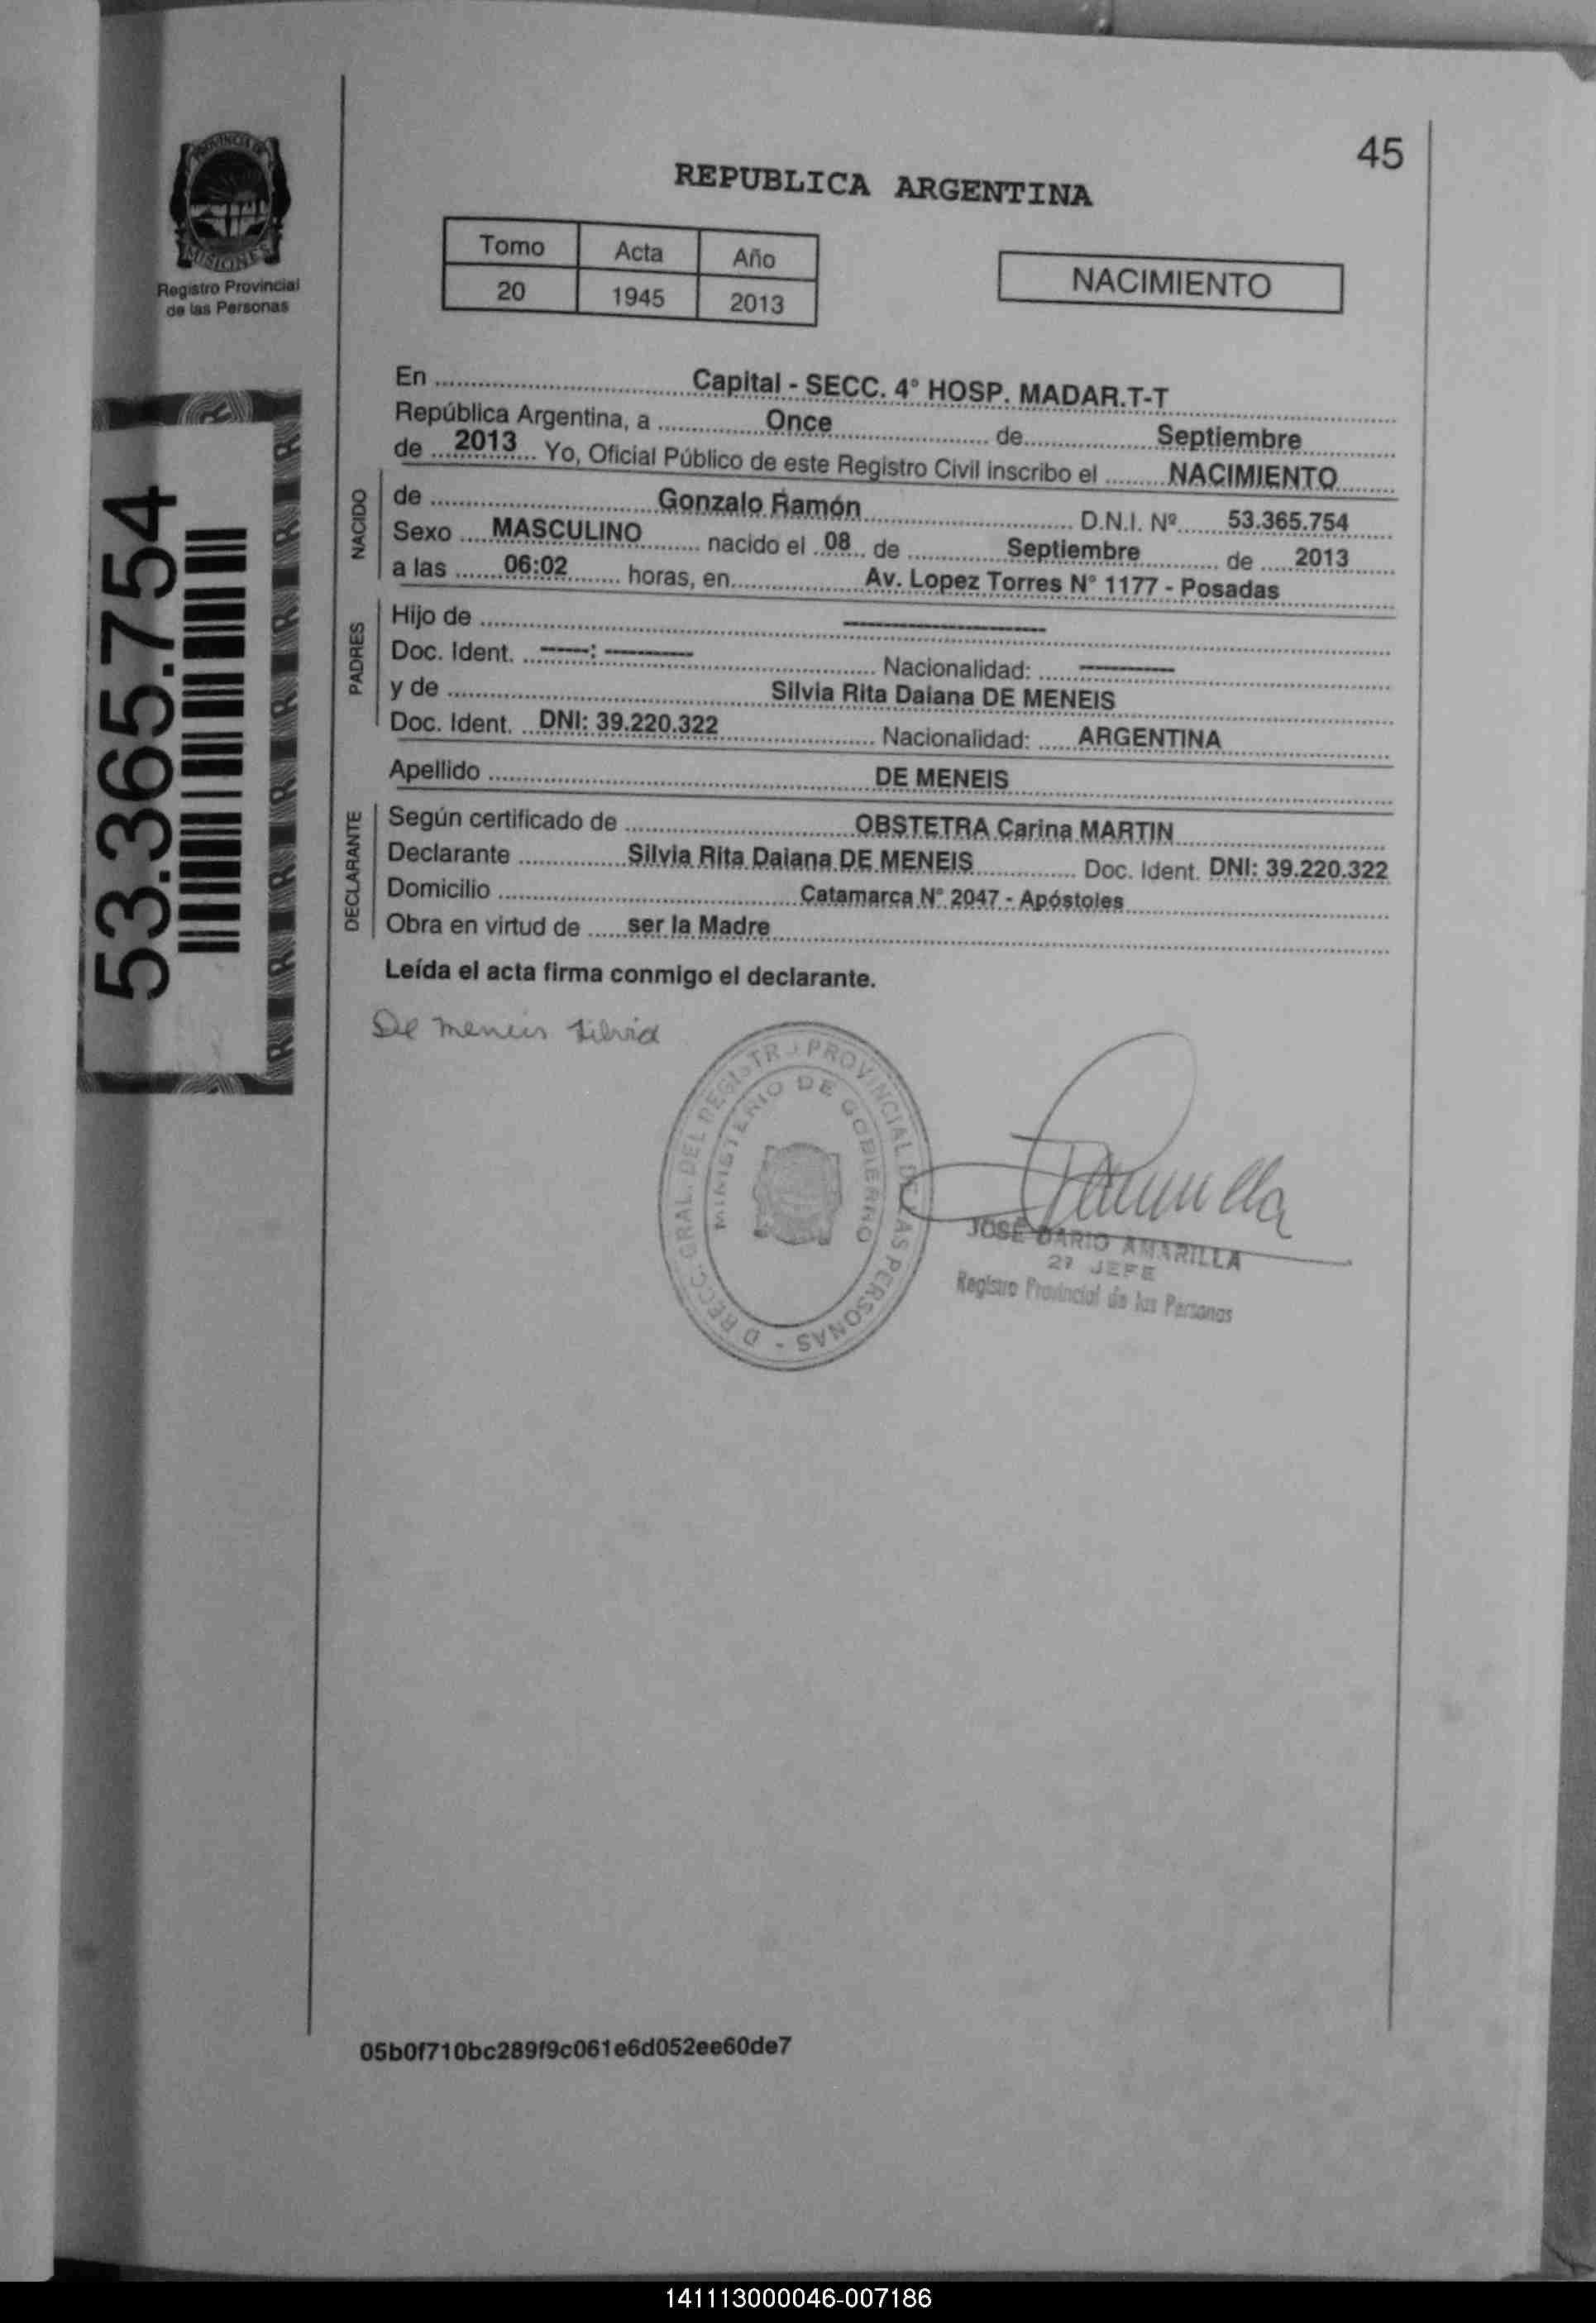 45
PROVINCIA DE
MISIONES
Registro Provincial
de las Personas
REPUBLICA ARGENTINA
Tomo Acta Año
20 1945 2013
NACIMIENTO
53.365.754
En Capital - SECC. 4° HOSP. MADAR.T-T
República Argentina, a Once de Septiembre
de 2013 Yo, Oficial Público de este Registro Civil inscribo el NACIMIENTO
NACIDO
de Gonzalo Ramón D.N.I. Nº 53.365.754
Sexo MASCULINO nacido el 08 de Septiembre de 2013
a las 06:02 horas, en Av. Lopez Torres N° 1177 - Posadas
PADRES
Hijo de ----------
Doc. Ident. -----: --------- Nacionalidad: ----------
y de Silvia Rita Daiana DE MENEIS
Doc. Ident. DNI: 39.220.322 Nacionalidad: ARGENTINA
Apellido DE MENEIS
DECLARANTE
Según certificado de OBSTETRA Carina MARTIN
Declarante Silvia Rita Daiana DE MENEIS Doc. Ident. DNI: 39.220.322
Domicilio Catamarca N° 2047 - Apóstoles
Obra en virtud de ser la Madre
Leída el acta firma conmigo el declarante.
De meneis silvia
GRAL. DEL REGISTRO PROVINCIAL DE LAS PERSONAS -
MINISTERIO DE GOBIERNO
JOSÉ DARIO AMARILLA
JEFE
Registro Provincial de las Personas
05b0f710bc289f9c061e6d052ee60de7
141113000046-007186